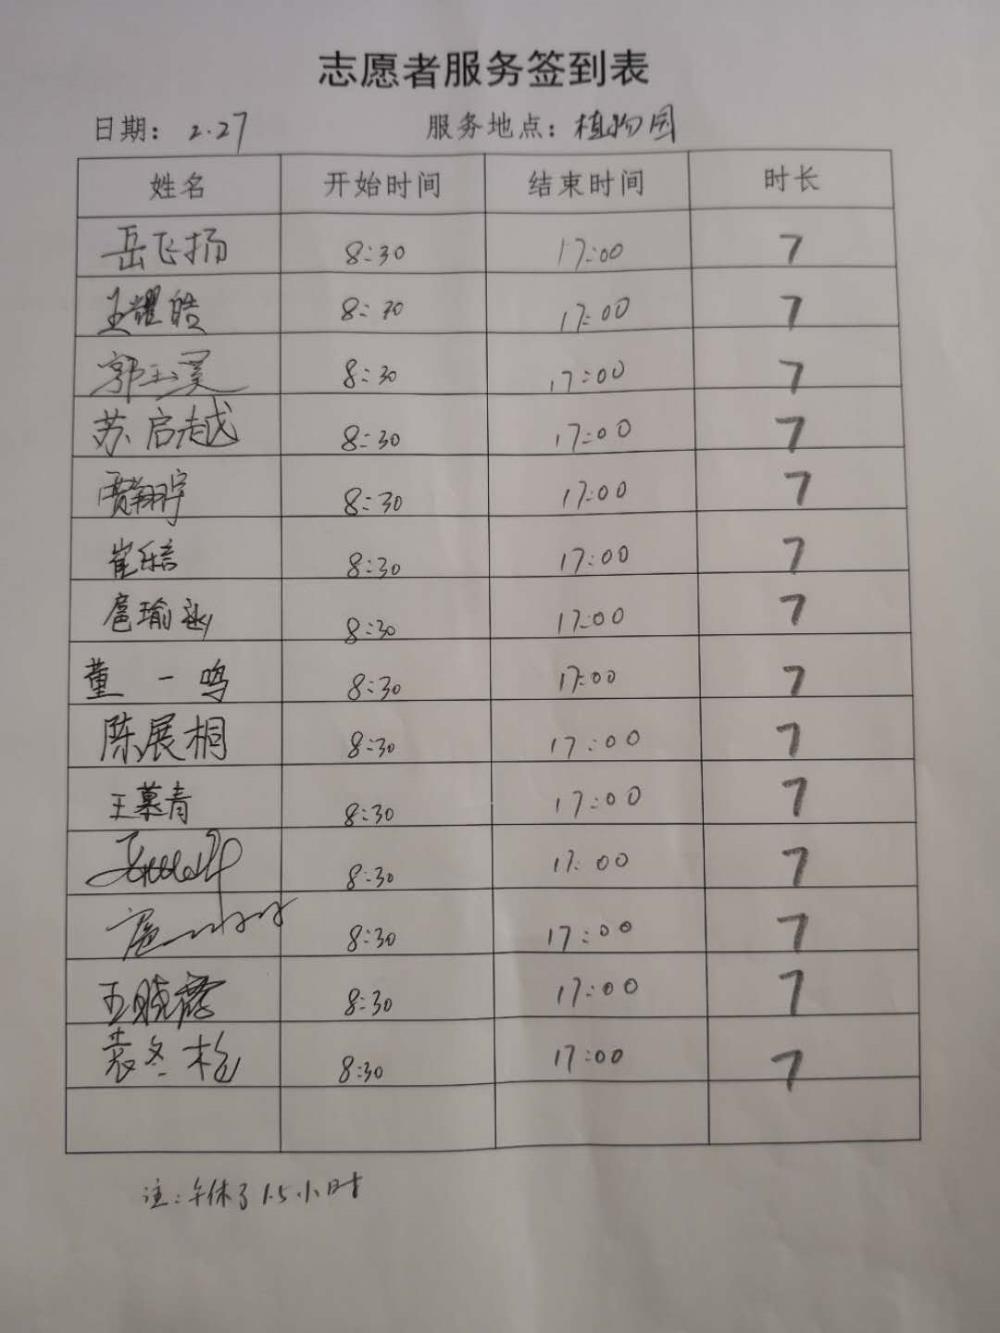 志愿者服务签到表
日期： 2.27 服务地点：植物园
姓名 开始时间 结束时间 时长
岳飞扬 8:30 17:00 7
王耀皓 8:30 17:00 7
郭玉昊 8:30 17:00 7
苏启越 8:30 17:00 7
贾翔宇 8:30 17:00 7
崔乐言 8:30 17:00 7
扈瑜 8:30 17:00 7
董一鸣 8:30 17:00 7
陈展桐 8:30 17:00 7
王慕青 8:30 17:00 7
8:30 17:00 7
8:30 17:00 7
王晓 8:30 17:00 7
袁冬松 8:30 17:00 7
注：午休了1.5小时